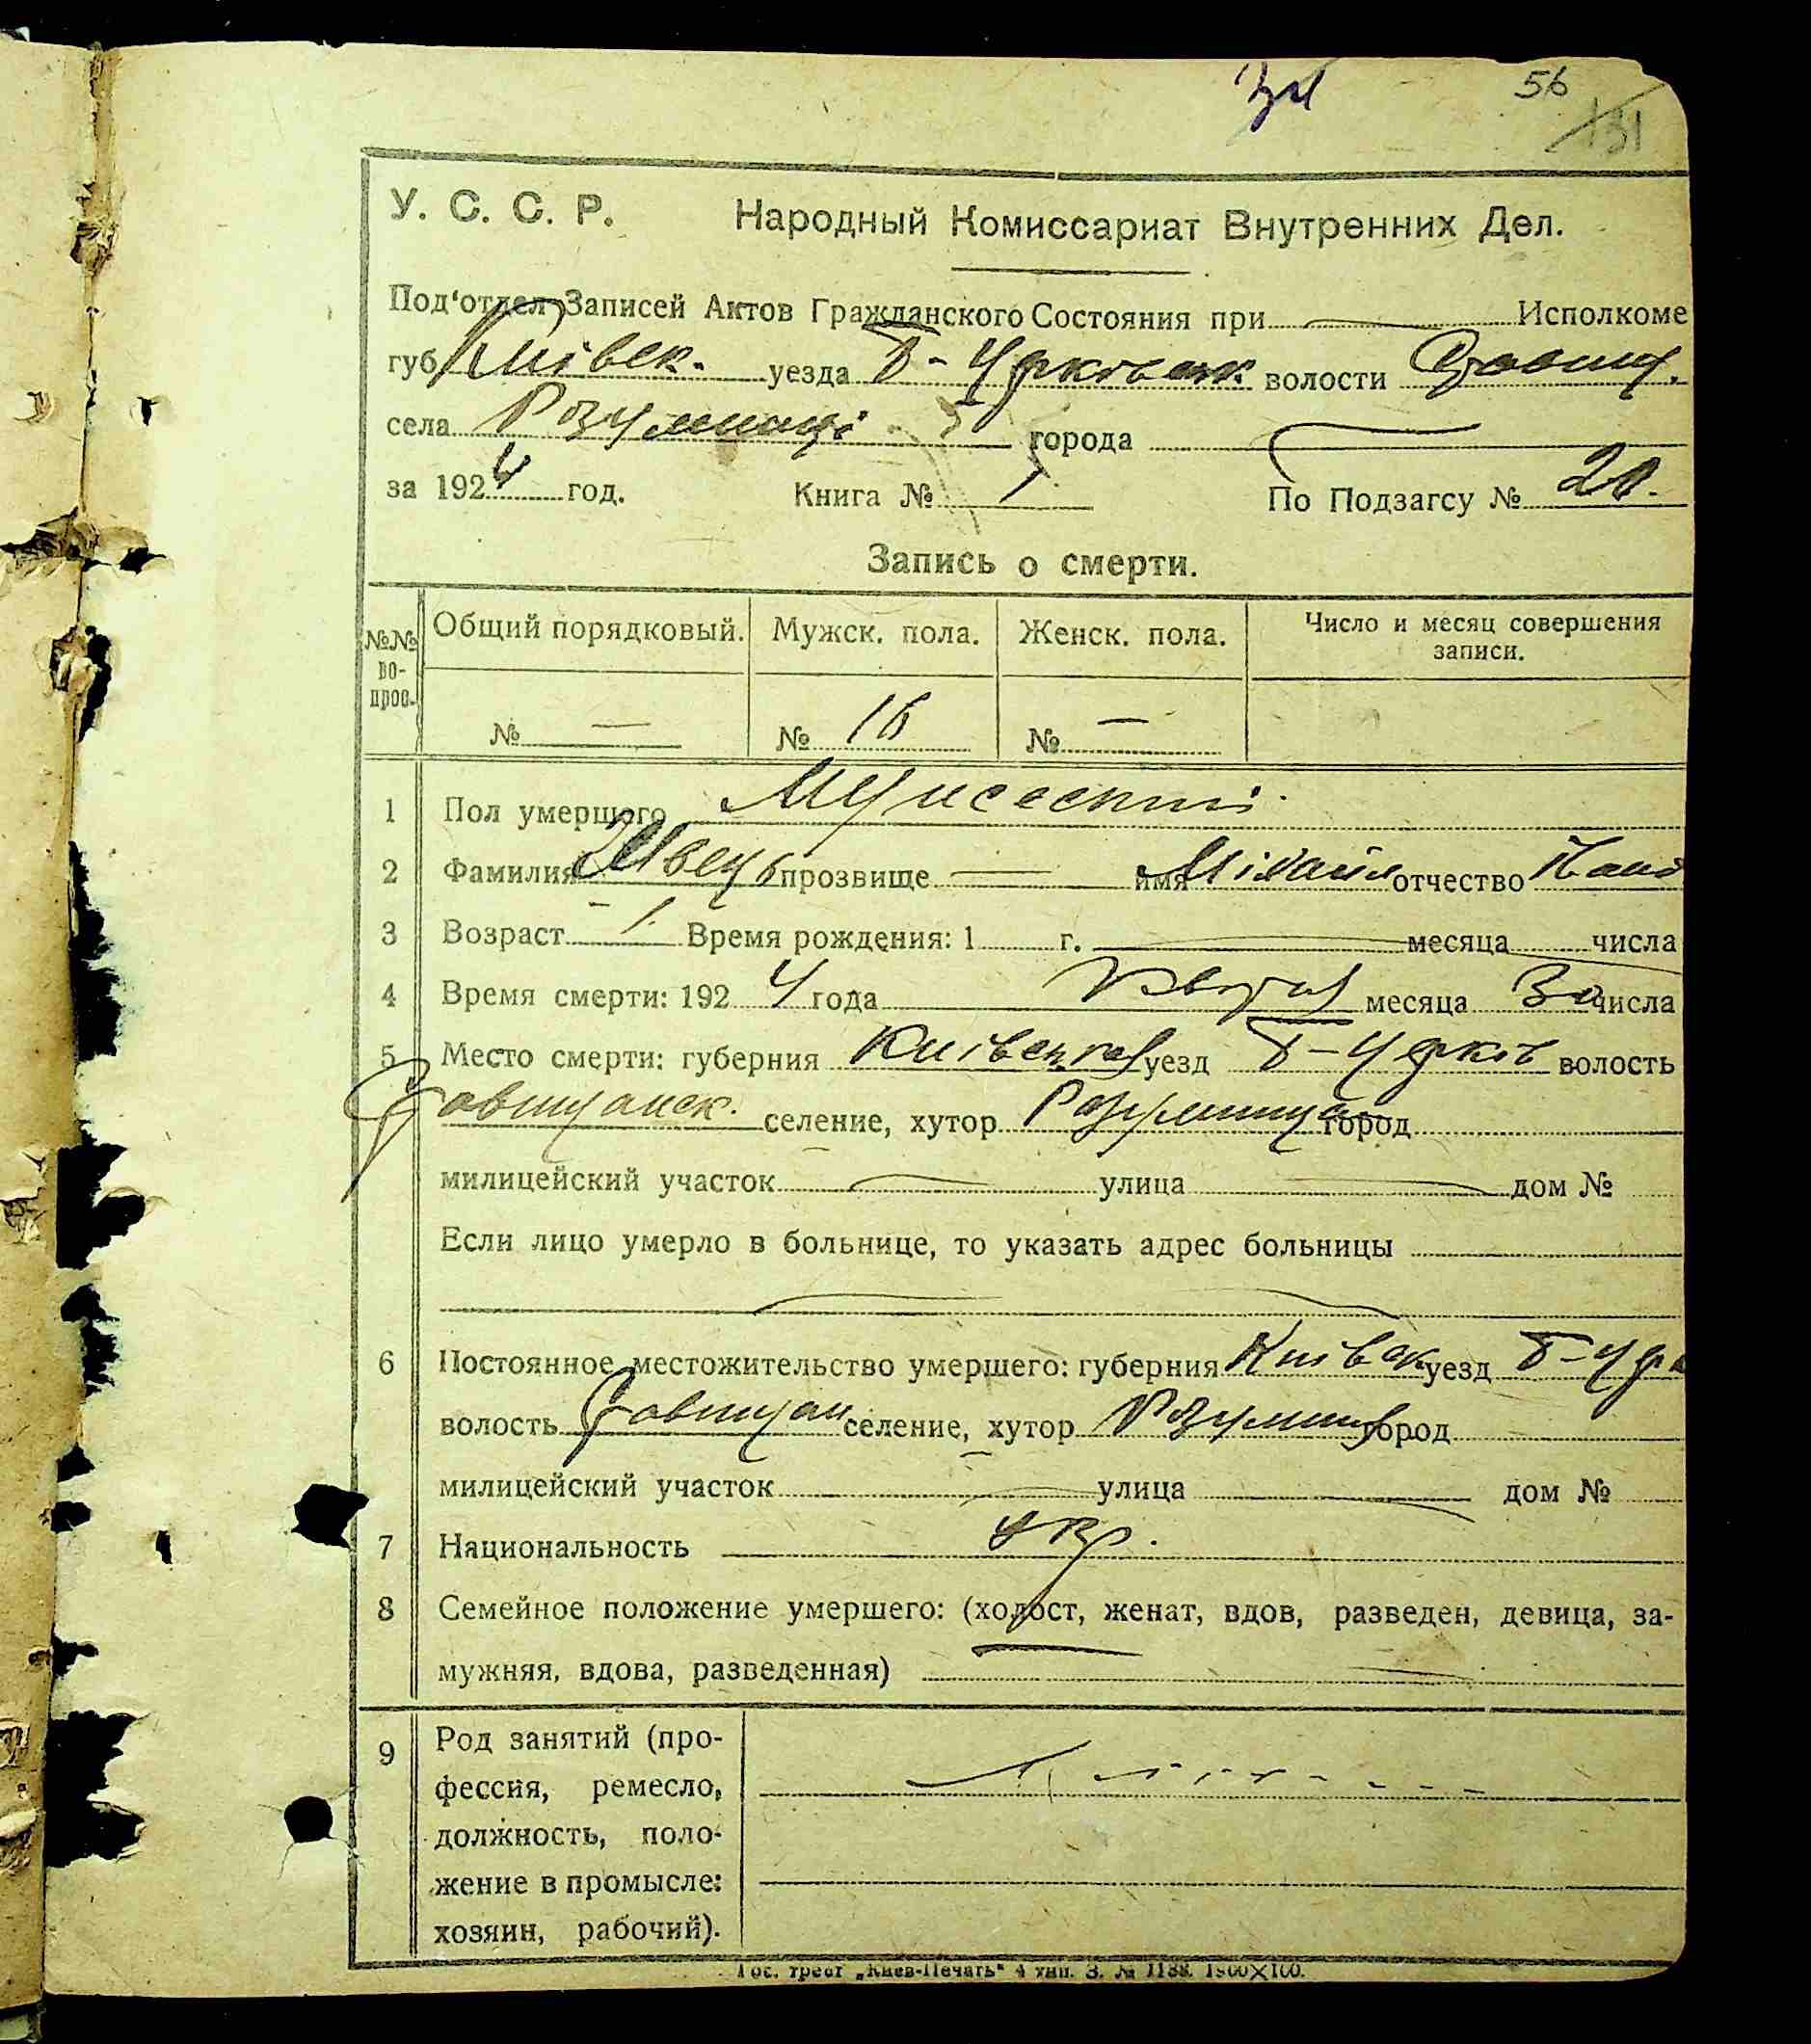 56
131
У. С. С. Р. Народный Комиссариат Внутренних Дел.
Под‘отдел Записей Актов Гражданского Состояния при Исполкоме
губ Київск. уезда Б-Церковск. волости
села Розумниці города
за 1924 год. Книга № 1 По Подзагсу № 20.
Запись о смерти.
№№ во-прос. Общий порядковый. Мужск. пола. Женск. пола. Число и месяц совершения записи.
№ — № 16 № —
1 Пол умершего
2 Фамилия Швець прозвище — имя Міхаил отчество
3 Возраст 1 Время рождения: 1 г. месяца числа
4 Время смерти: 1924 года месяца 30 числа
5 Место смерти: губерния Київська уезд Б-Церков волость
селение, хутор Розумниця город
милицейский участок улица дом №
Если лицо умерло в больнице, то указать адрес больницы
6 Постоянное местожительство умершего: губерния Київск уезд Б-Цер
волость селение, хутор город
милицейский участок улица дом №
7 Национальность укр.
8 Семейное положение умершего: (холост, женат, вдов, разведен, девица, за-
мужняя, вдова, разведенная)
9 Род занятий (про-
фессия, ремесло,
должность, поло-
жение в промысле:
хозяин, рабочий).
Гос. трест „Киев-Печать“ 4 тип. З. № 1188. 1900×100.